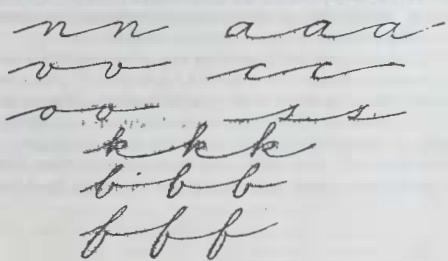 n n a a a
v v c c
o o s s
k k k
b b b
f f f